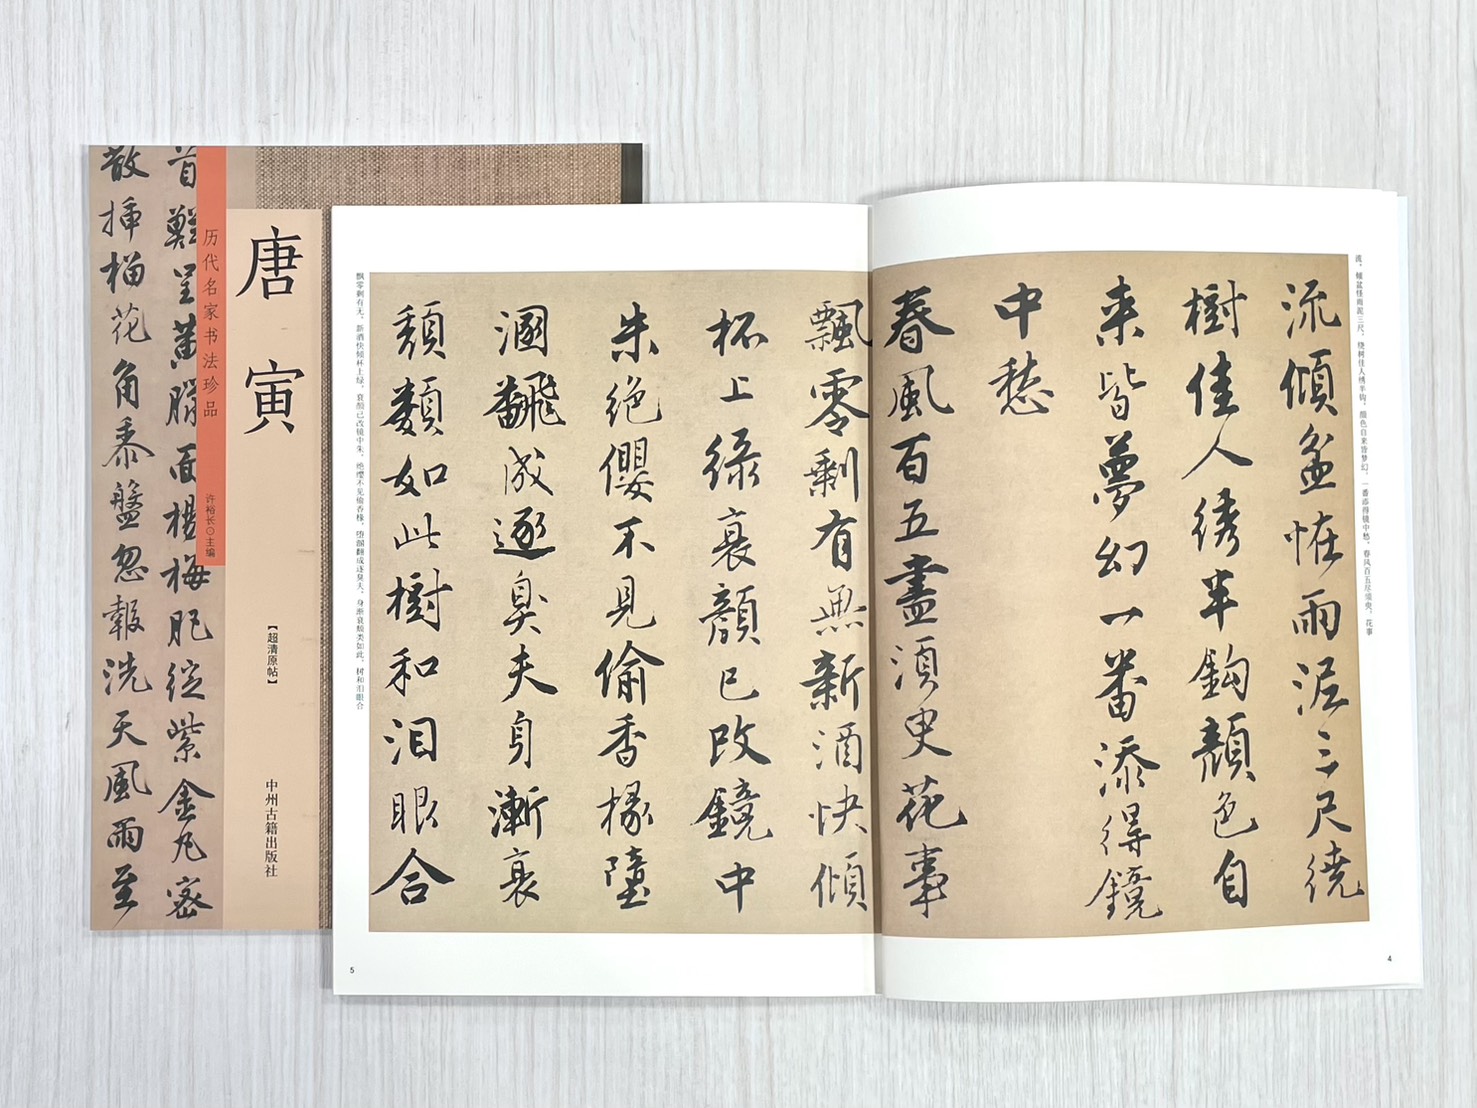 首難呈黄臑面楊梅肥綻紫金丸密
散插榴花角黍盤忽報洗天風雨至
历代名家书法珍品
许裕长⊙主编
唐寅
【超清原帖】
中州古籍出版社
流，倾盆怪雨泥三尺，绕树佳人绣半钩，颜色自来皆梦幻，一番添得镜中愁。春风百五尽须臾，花事
流傾盆恠雨泥三尺繞
樹佳人绣半鈎顔色自
来皆夢幻一番添得鏡
中愁
春風百五盡須臾花事
4
飘零剩有无。新酒快倾杯上绿，衰颜已改镜中朱。绝缨不见偷香椽，堕溷翻成逐臭夫。身渐衰颓类如此，树和泪眼合
飄零剩有無新酒快傾
杯上緑衰顔已改鏡中
朱絶纓不見偷香椽墮
溷飜成逐臭夫身漸衰
頽類如此樹和泪眼合
5